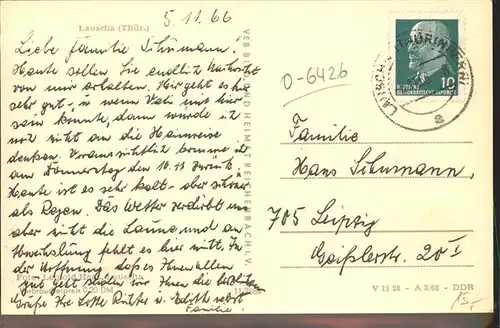 5 11. 66
Lauscha (Thür.)
Liebe Familie Schumann!
Heute sollen Sie endlich Nachricht
von mir erhalten. Hier geht es mir
sehr gut, u. wenn Vati mit hier
sein könnte, dann würde ich
noch nicht an die Heimreise
denken. Voraussichtlich komme ich
am Donnerstag den 10.11 zurück.
Heute ist es sehr kalt - aber schöner
als Regen. Das Wetter verdirbt uns
aber nicht die Laune und an
Abwechslung fehlt es hier nicht. In
der Hoffnung, daß es Ihnen allen
gut geht senden wir Ihnen die herzlichsten
Grüße Ihre Lotte Richter u. Edith nebst
Familie.
Verbraucherpreis 0,20 DM
VEB BILD UND HEIMAT REICHENBACH I. V.
O-6426
DEUTSCHE
DEMOKRATISCHE REPUBLIK
10
a
Familie
Hans Schumann,
705 Leipzig
Geißlerstr. 20 I
V 11 28 - A 3/63 - DDR
15,-